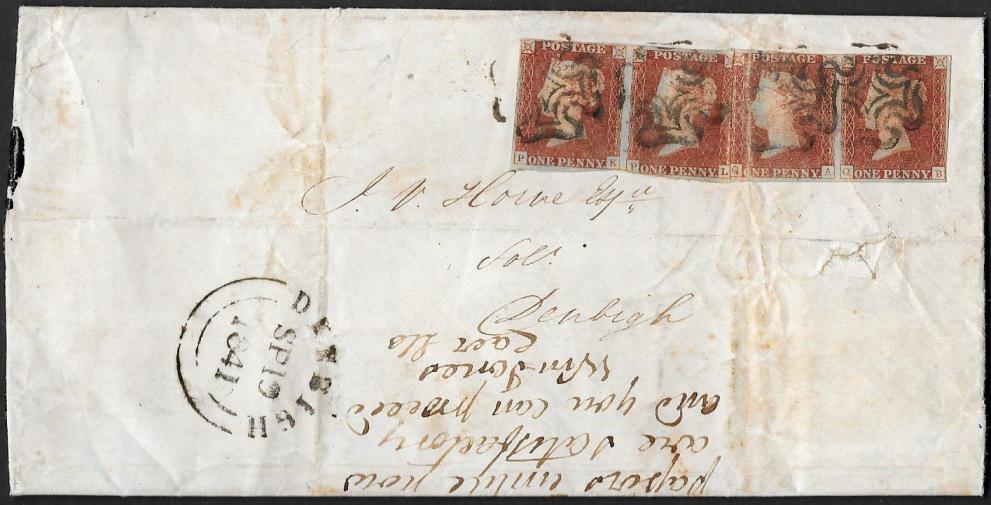 POSTAGE POSTAGE POSTAGE POSTAGE
P ONE PENNY K P ONE PENNY L Q ONE PENNY A Q ONE PENNY B
J. V. Horne Esqr
Solr
Denbigh
DENBIGH
SP 19
1841
papers entire now
are satisfactory
and you can proceed
Wm Jones